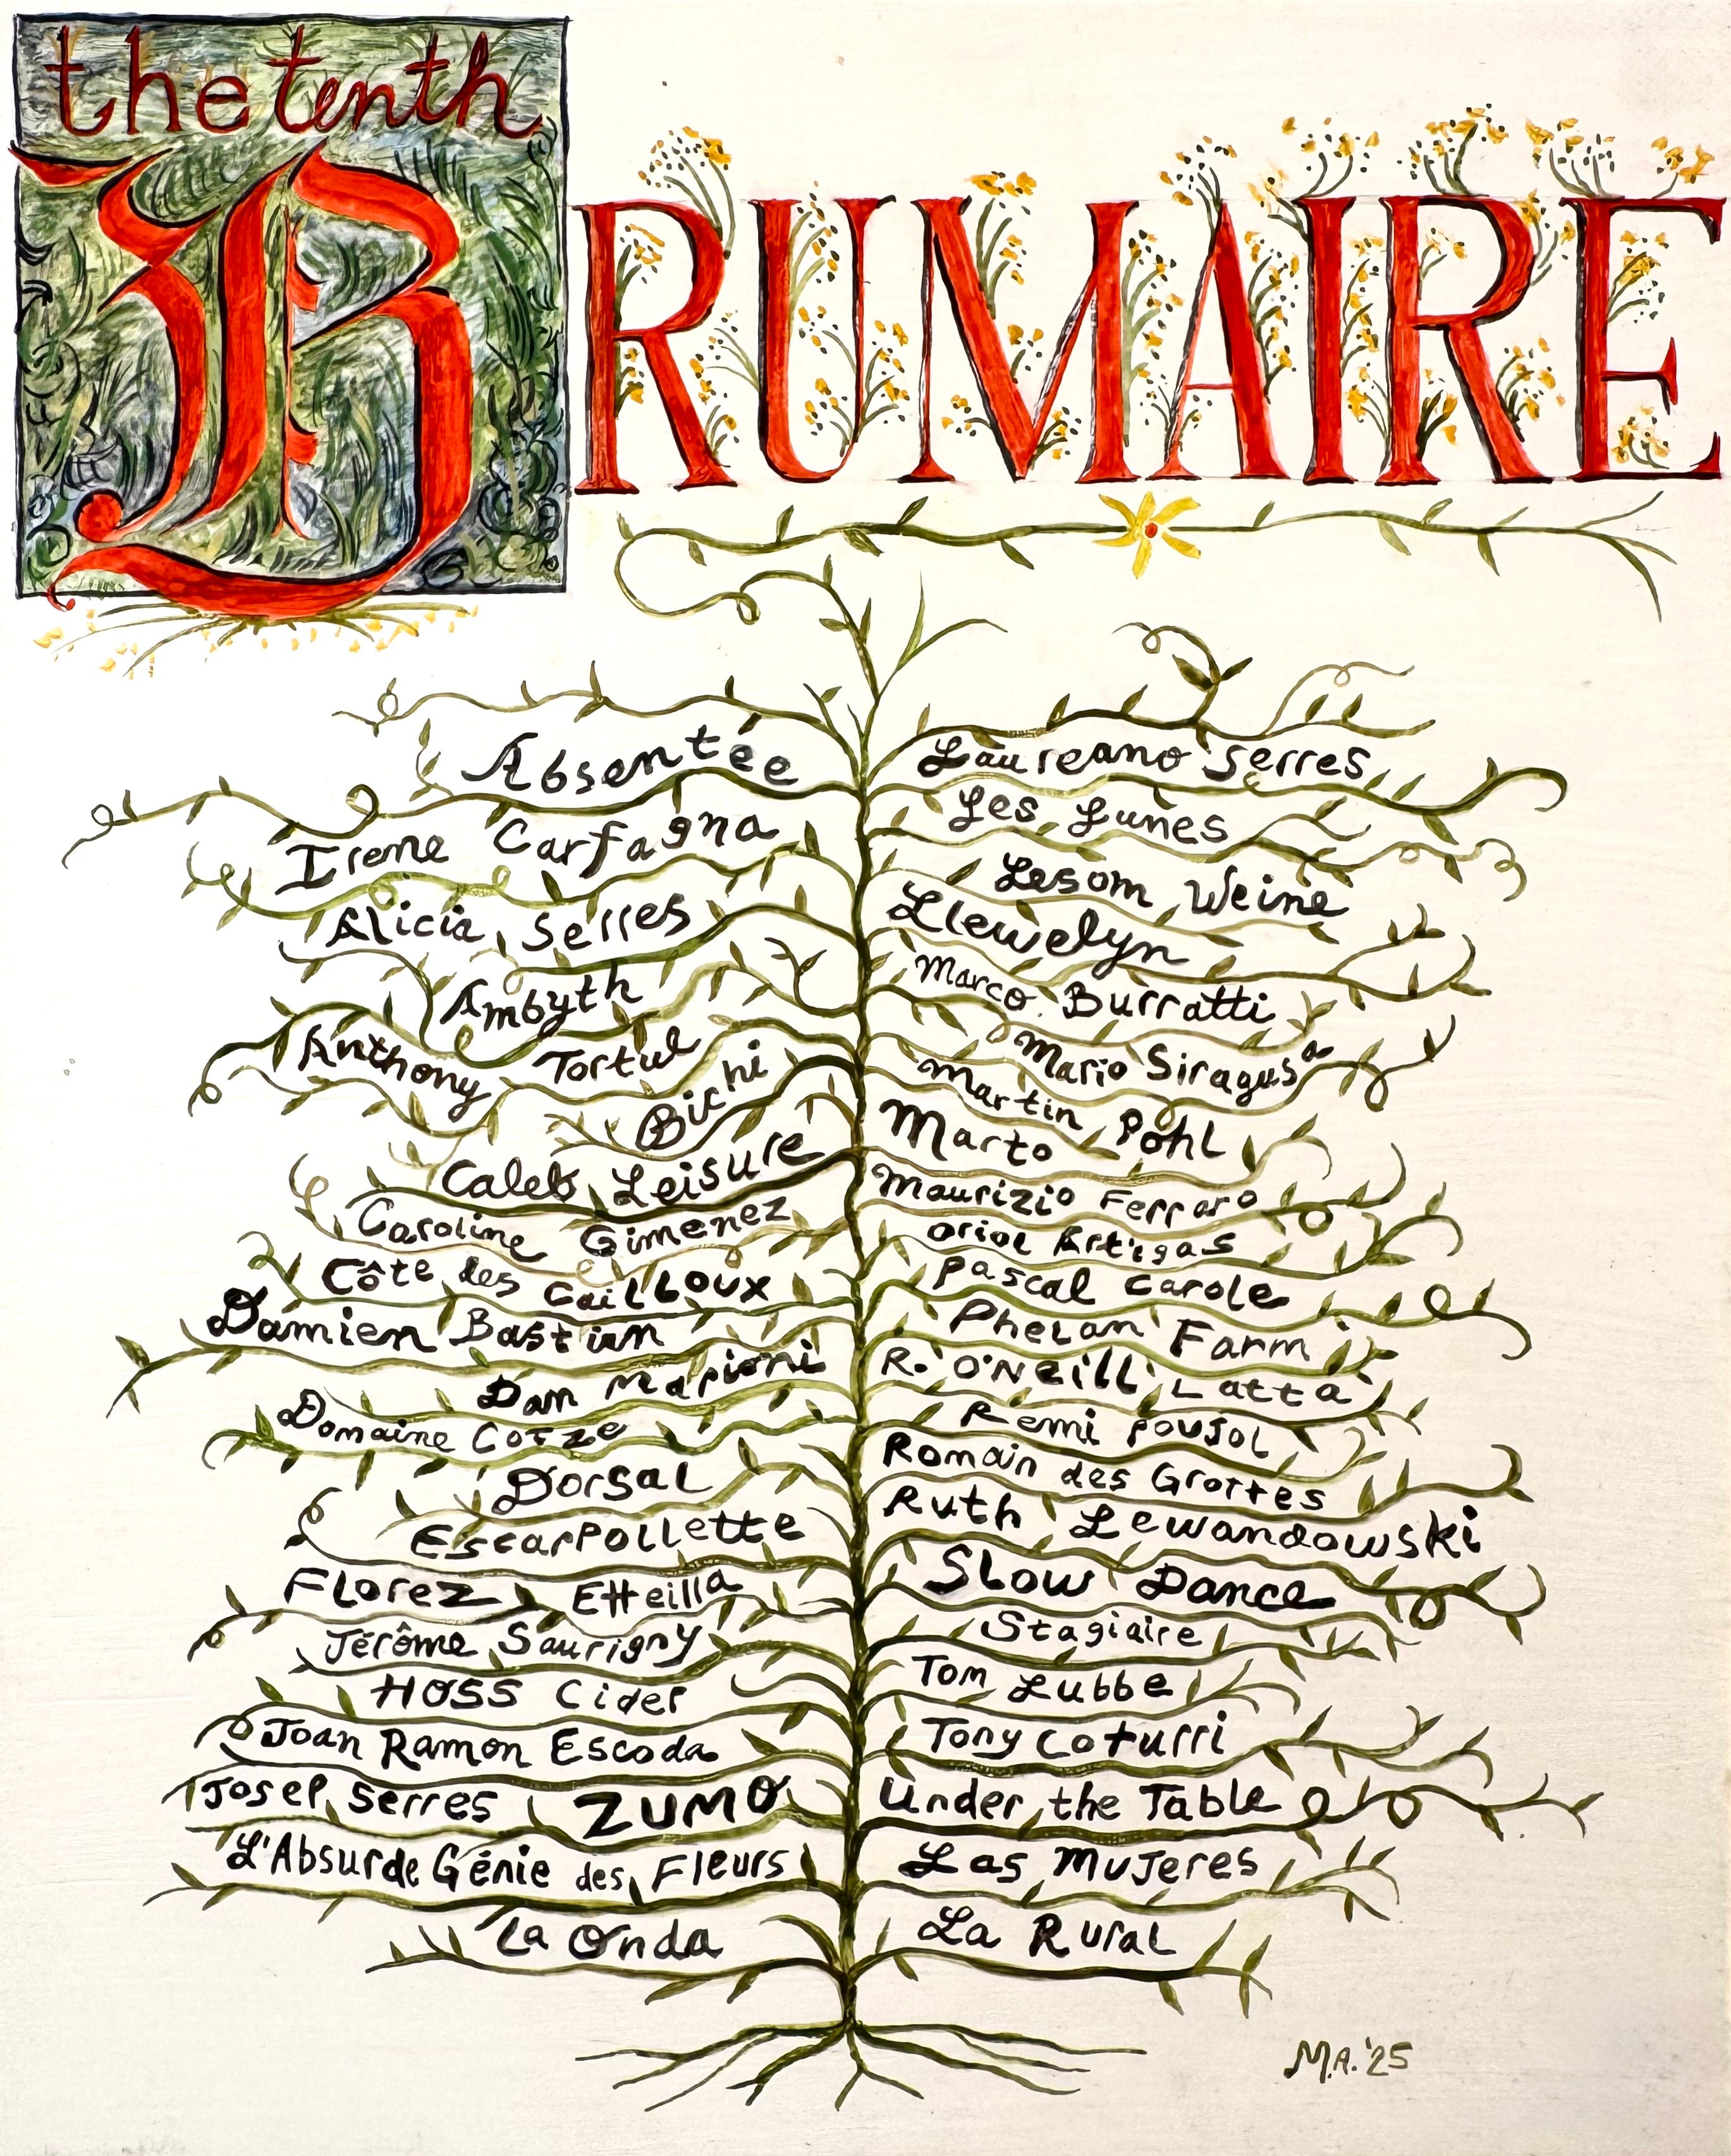 the tenth
BRUMAIRE
Absentée
Irene Carfagna
Alicia Serres
Ambyth
Anthony Tortul
Bichi
Caleb Leisure
Caroline Gimenez
Côte des Cailloux
Damien Bastian
Dan Marioni
Domaine Cotze
Dorsal
Escarpollette
Florez Etteilla
Jérôme Saurigny
HOSS Cider
Joan Ramon Escoda
Josep Serres ZUMO
L'Absurde Génie des Fleurs
La Onda
Laureano Serres
Les Lunes
Lesom Weine
Llewelyn
Marco Burratti
Mario Siragusa
Martin Pohl
Marto
Maurizio Ferraro
Oriol Artigas
Pascal Carole
Phelan Farm
R. O'Neill Latta
Remi Poujol
Romain des Grottes
Ruth Lewandowski
Slow Dance
Stagiaire
Tom Lubbe
Tony Coturri
Under the Table
Las Mujeres
La Rural
M.A. '25